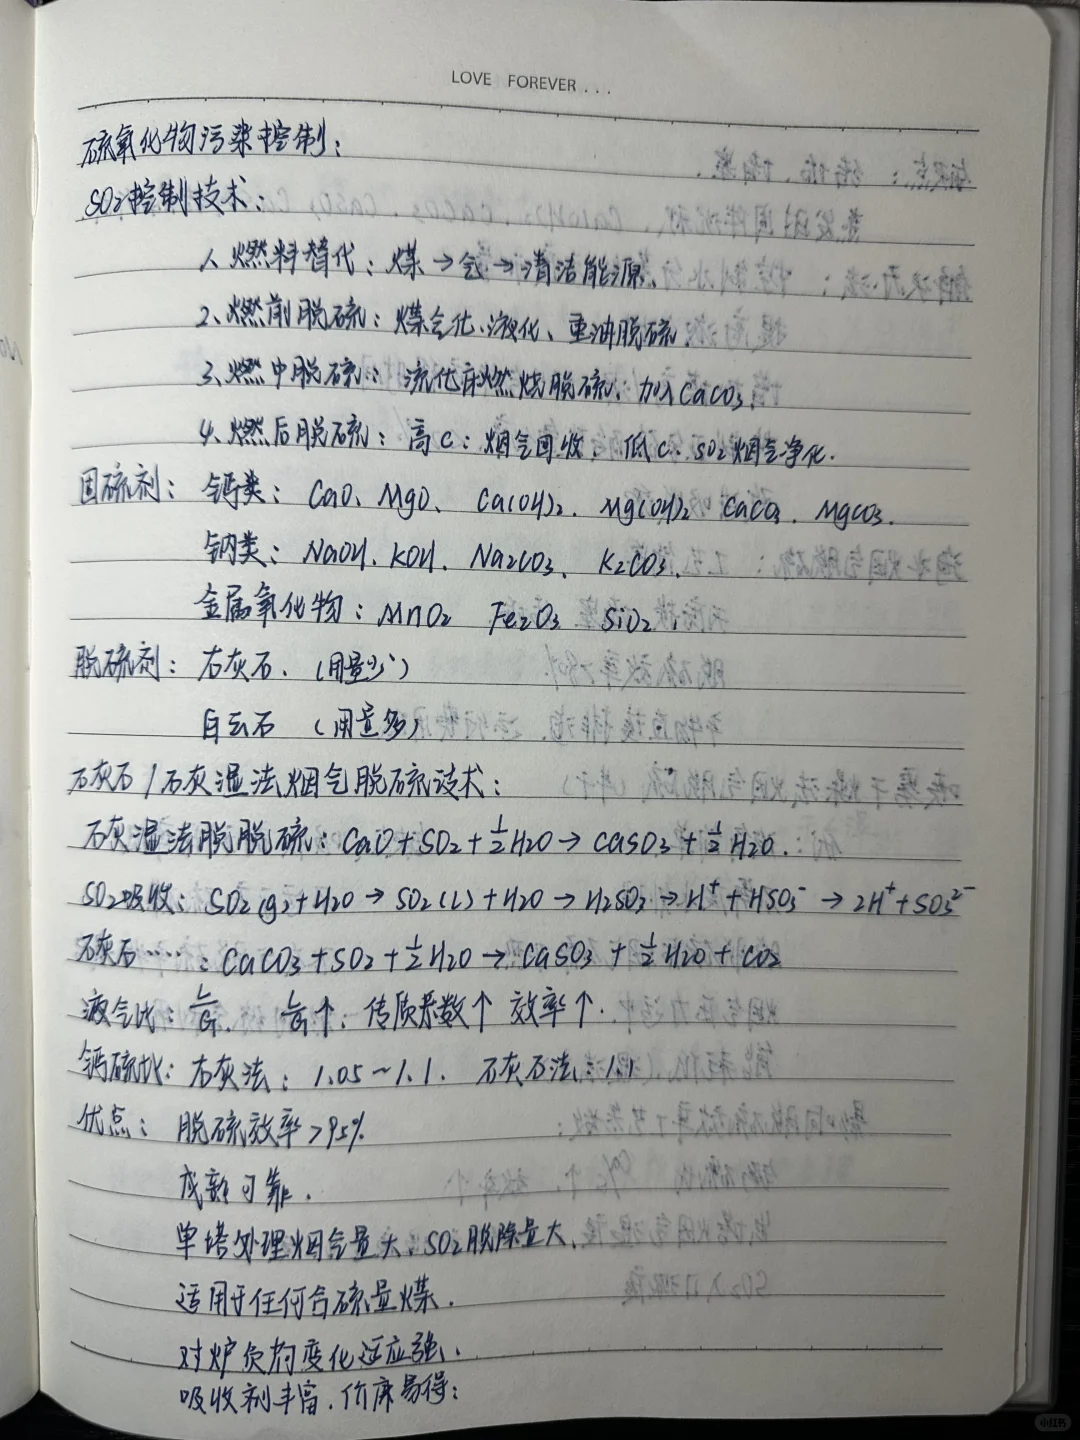 LOVE FOREVER . . .
硫氧化物污染控制：
SO2控制技术：
1、燃料替代：煤→气→清洁能源
2、燃前脱硫：煤气化、液化、重油脱硫
3、燃中脱硫：流化床燃烧脱硫、加入CaCO3
4、燃后脱硫：高C：烟气回收、低C、SO2烟气净化.
固硫剂：钙类：CaO、MgO、Ca(OH)2、Mg(OH)2 CaCO3、MgCO3.
钠类：NaOH、KOH、Na2CO3、K2CO3.
金属氧化物：MnO2 Fe2O3 SiO2
脱硫剂：石灰石.（用量少）
白云石（用量多）
石灰石/石灰湿法烟气脱硫技术：
石灰湿法脱脱硫：CaO+SO2+½H2O→CaSO3+½H2O.
SO2吸收：SO2(g)+H2O→SO2(l)+H2O→H2SO3→H⁺+HSO3⁻→2H⁺+SO3²⁻
石灰石……：CaCO3+SO2+½H2O→CaSO3+½H2O+CO2
液气比：L/G. L/G↑、传质系数↑ 效率↑.
钙硫比：石灰法：1.05~1.1. 石灰石法：1.1
优点：脱硫效率>95%
成熟可靠.
单塔处理烟气量大、SO2脱除量大、
适用于任何含硫量煤.
对炉负荷变化适应强、
吸收剂丰富、价廉易得；
小红书